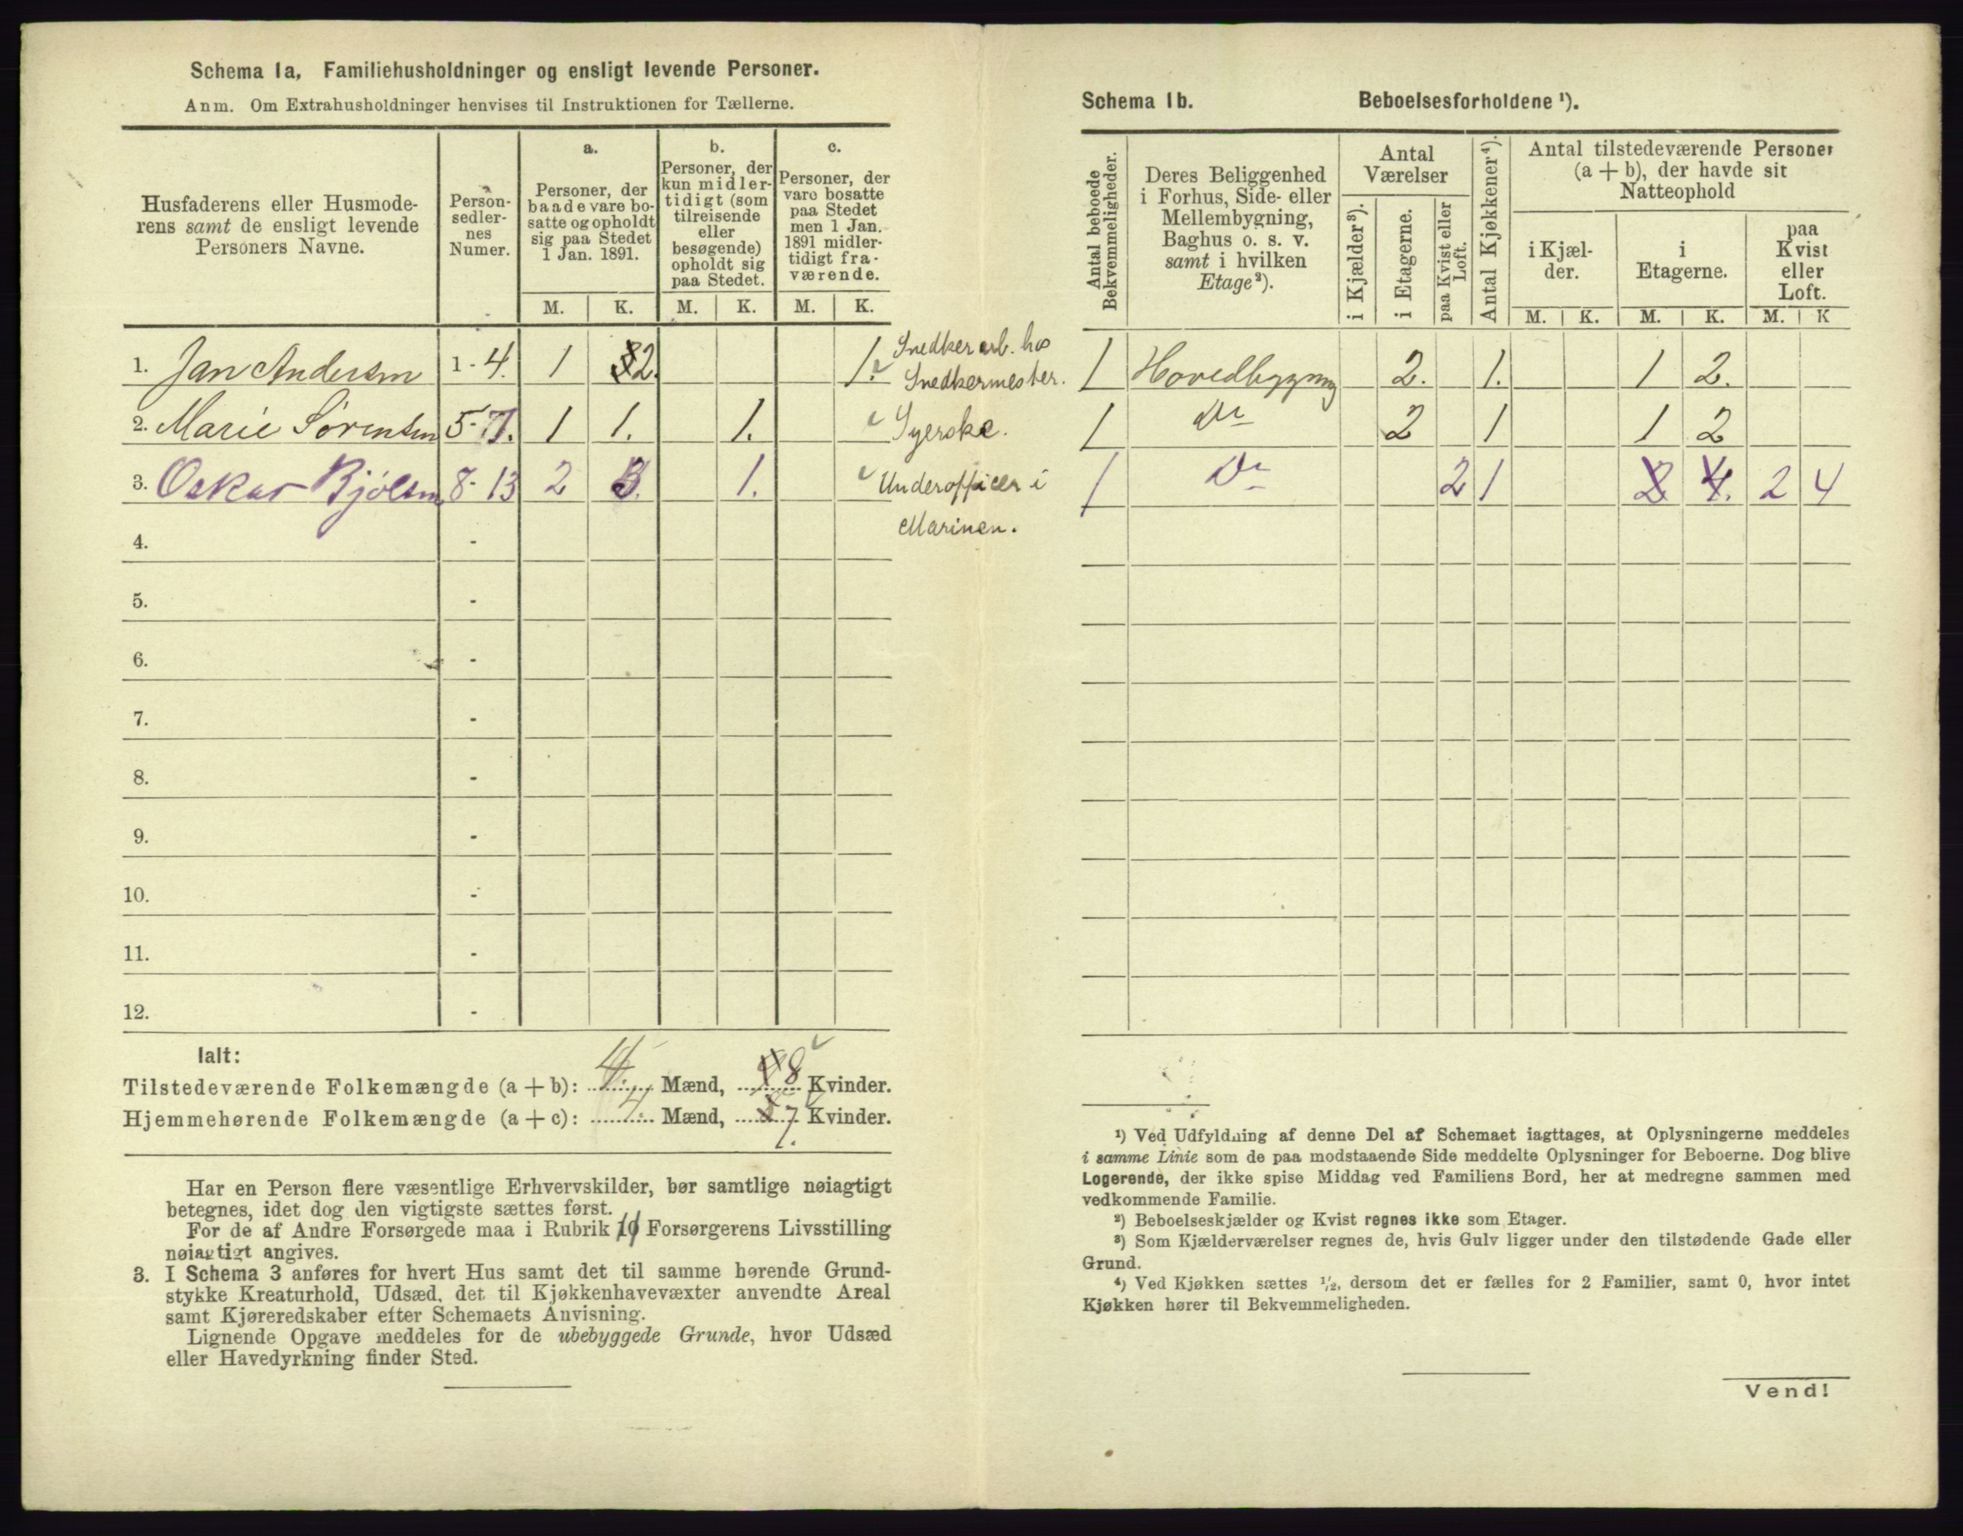 Schema 1a, Familiehusholdninger og ensligt levende Personer.
Anm. Om Extrahusholdninger henvises til Instruktionen for Tællerne.
Husfaderens eller Husmode-
rens samt de ensligt levende
Personers Navne.
Person-
sedler-
nes
Numer.
a.
Personer, der
baade vare bo-
satte og opholdt
sig paa Stedet
1 Jan. 1891.
b.
Personer, der
kun midler-
tidigt (som
tilreisende
eller
besøgende)
opholdt sig
paa Stedet.
c.
Personer, der
vare bosatte
paa Stedet
men 1 Jan.
1891 midler-
tidigt fra-
værende.
M. K. M. K. M. K.
1. Jan Andersen 1-4. 1 2. 1. Snedkerarb. hos
Snedkermester.
2. Marie Sørensen 5-7. 1 1. 1. Syerske.
3. Oskar Bjølsen 8-13 2 3. 1. Underofficer i
Marinen.
4. -
5. -
6. -
7. -
8. -
9. -
10. -
11. -
12. -
Ialt:
Tilstedeværende Folkemængde (a + b): 4. Mænd, 8 Kvinder.
Hjemmehørende Folkemængde (a + c): 4. Mænd, 7. Kvinder.
Har en Person flere væsentlige Erhvervskilder, bør samtlige nøiagtigt
betegnes, idet dog den vigtigste sættes først.
For de af Andre Forsørgede maa i Rubrik 11 Forsørgerens Livsstilling
nøiagtigt angives.
3. I Schema 3 anføres for hvert Hus samt det til samme hørende Grund-
stykke Kreaturhold, Udsæd, det til Kjøkkenhavevæxter anvendte Areal
samt Kjøreredskaber efter Schemaets Anvisning.
Lignende Opgave meddeles for de ubebyggede Grunde, hvor Udsæd
eller Havedyrkning finder Sted.
Schema 1b. Beboelsesforholdene ¹).
Antal beboede
Bekvemmeligheder.
Deres Beliggenhed
i Forhus, Side- eller
Mellembygning,
Baghus o. s. v.
samt i hvilken
Etage²).
Antal
Værelser
i Kjælder³).
i Etagerne.
paa Kvist eller
Loft.
Antal Kjøkkener⁴).
Antal tilstedeværende Personer
(a + b), der havde sit
Natteophold
i Kjæl-
der.
i
Etagerne.
paa
Kvist
eller
Loft.
M. K. M. K. M. K
1 Hovedbygning 2. 1. 1 2.
1 Do 2 1 1 2
1 Do 2 1 2 4. 2 4
¹) Ved Udfyldning af denne Del af Schemaet iagttages, at Oplysningerne meddeles
i samme Linie som de paa modstaaende Side meddelte Oplysninger for Beboerne. Dog blive
Logerende, der ikke spise Middag ved Familiens Bord, her at medregne sammen med
vedkommende Familie.
²) Beboelseskjælder og Kvist regnes ikke som Etager.
³) Som Kjælderværelser regnes de, hvis Gulv ligger under den tilstødende Gade eller
Grund.
⁴) Ved Kjøkken sættes ¹/₂, dersom det er fælles for 2 Familier, samt 0, hvor intet
Kjøkken hører til Bekvemmeligheden.
Vend!